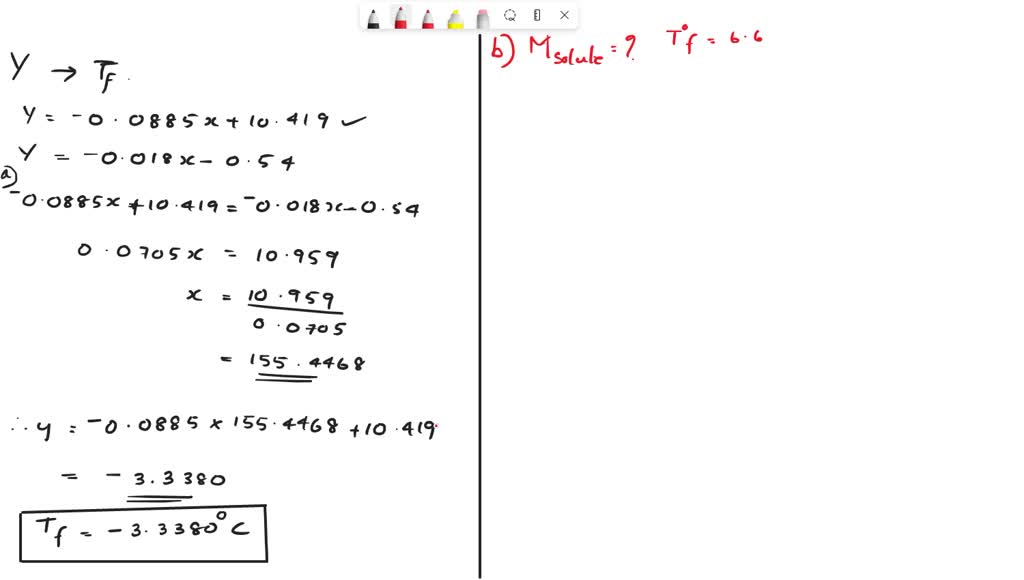 Y → Tf.
Y = -0.0885x + 10.419 ✓
Y = -0.018x - 0.54
a)
-0.0885x + 10.419 = -0.018x - 0.54
0.0705x = 10.959
x = 10.959
0.0705
= 155.4468
∴ y = -0.0885 × 155.4468 + 10.419
= -3.3380
Tf = -3.3380°C
b) M solute = ? T°f = 6.6